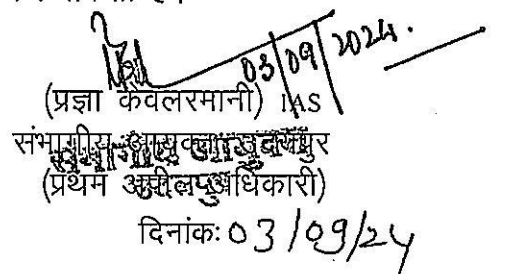 03/09/2024.
(प्रज्ञा केवलरमानी) IAS
संभागीय आयुक्त, उदयपुर
(प्रथम अपील अधिकारी)
दिनांकः 03/09/24